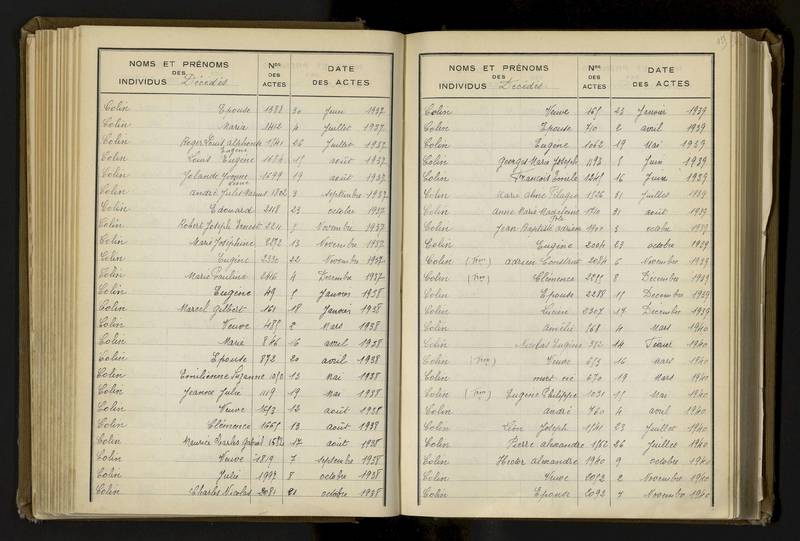 NOMS ET PRÉNOMS
DES
INDIVIDUS Décédés
Nos
DES
ACTES
DATE
DES ACTES
Colin Epouse 1388 30 Juin 1937
Colin Maria 4 Juillet 1937
Colin Roger Louis alphonse 1541 26 Juillet 1937
Eugène
Colin Louis Eugène août 1937
Colin Yolande Yvonne 1699 19 août 1937
Colin andré Jules Marius 1802 3 septembre 1937
Colin Edouard 2118 23 octobre 1937
Colin Robert Joseph Novembre 1937
Colin Marie Joséphine 2272 13 Novembre 1937
Colin Eugène 2330 22 Novembre 1937
Colin Marie Pauline 2416 4 Decembre 1937
Colin Eugène 49 Janvier 1938
Colin Marcel Gilbert 161 18 Janvier 1938
Colin Veuve 485 2 Mars 1938
Colin Marie 846 16 avril 1938
Colin Epouse 872 20 avril 1938
Colin Emilienne Suzanne 1070 13 Mai 1938
Colin Jeanne Julie 1119 19 Mai 1938
Colin Veuve 12 août 1938
Colin Clémence 13 août 1938
Colin Maurice Charles Gabriel 17 août 1938
Colin Veuve 1819 7 septembre 1938
Colin Julie 1997 8 octobre 1938
Colin Charles Nicolas 2081 21 octobre 1938
NOMS ET PRÉNOMS
DES
INDIVIDUS Décédés
Nos
DES
ACTES
DATE
DES ACTES
Colin Veuve 165 23 Janvier 1939
Colin Epouse 710 2 avril 1939
Colin Eugène 1062 19 Mai 1939
Colin Georges Marie Joseph 1193 8 Juin 1939
Colin François Emile 1249 16 Juin 1939
Colin Marie 1526 31 Juillet 1939
Colin Anne Marie Madeleine 1710 31 août 1939
Colin Jean Baptiste adrien 1900 3 octobre 1939
Colin Eugène 2004 23 octobre 1939
Colin (Vve) adrien 2084 6 Novembre 1939
Colin (Vve) Clémence 8 Decembre 1939
Colin Epouse 2288 Decembre 1939
Colin Lucien 2307 17 Decembre 1939
Colin amélie 868 4 Mars 1940
Colin Nicolas Eugène 382 14 1940
Colin (Vve) Veuve 653 16 Mars 1940
Colin mort né 670 19 Mars 1940
Colin (Vve) Eugène Philippe 1031 Mai 1940
Colin andré 760 4 avril 1940
Colin Léon Joseph 1541 23 Juillet 1940
Colin Pierre alexandre 1562 26 Juillet 1940
Colin Hector alexandre 1940 9 octobre 1940
Colin Veuve 2072 2 Novembre 1940
Colin Epouse 2093 7 Novembre 1940